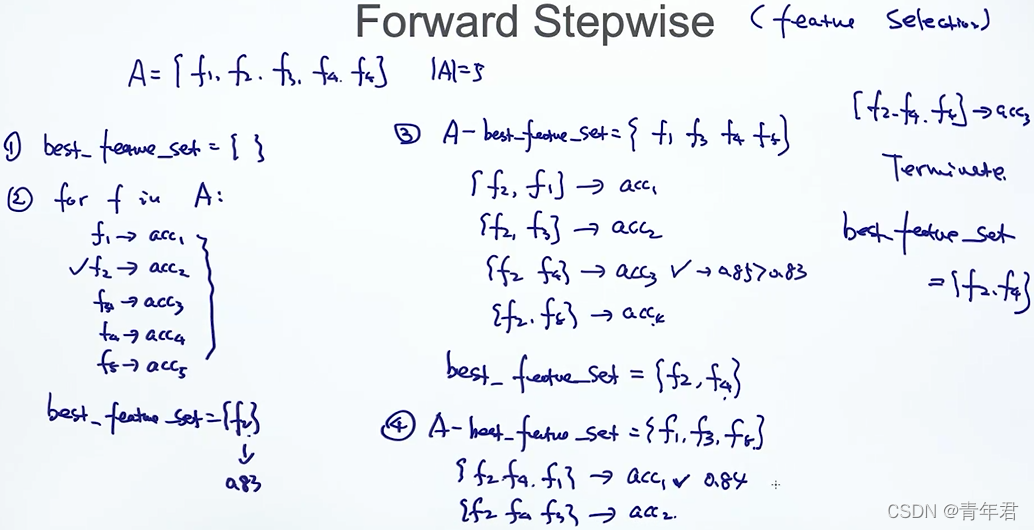 Forward Stepwise (feature selection)
A = {f1, f2, f3, f4, f5} |A|=5
① best_feature_set = { }
② for f in A:
f1 → acc1
✓f2 → acc2
f3 → acc3
f4 → acc4
f5 → acc5
best_feature_set = {f2}
↓
0.83
③ A-best_feature_set = { f1 f3 f4 f5}
{f2, f1} → acc1
{f2, f3} → acc2
{f2 f4} → acc3 ✓ → 0.85 > 0.83
{f2, f5} → acc4
best_feature_set = {f2, f4}
④ A-best_feature_set = {f1, f3, f5}
{f2, f4, f1} → acc1 ✓ 0.84
{f2 f4 f3} → acc2
{f2, f4, f5} → acc3
Terminate.
best_feature_set
= {f2, f4}
CSDN @青年君